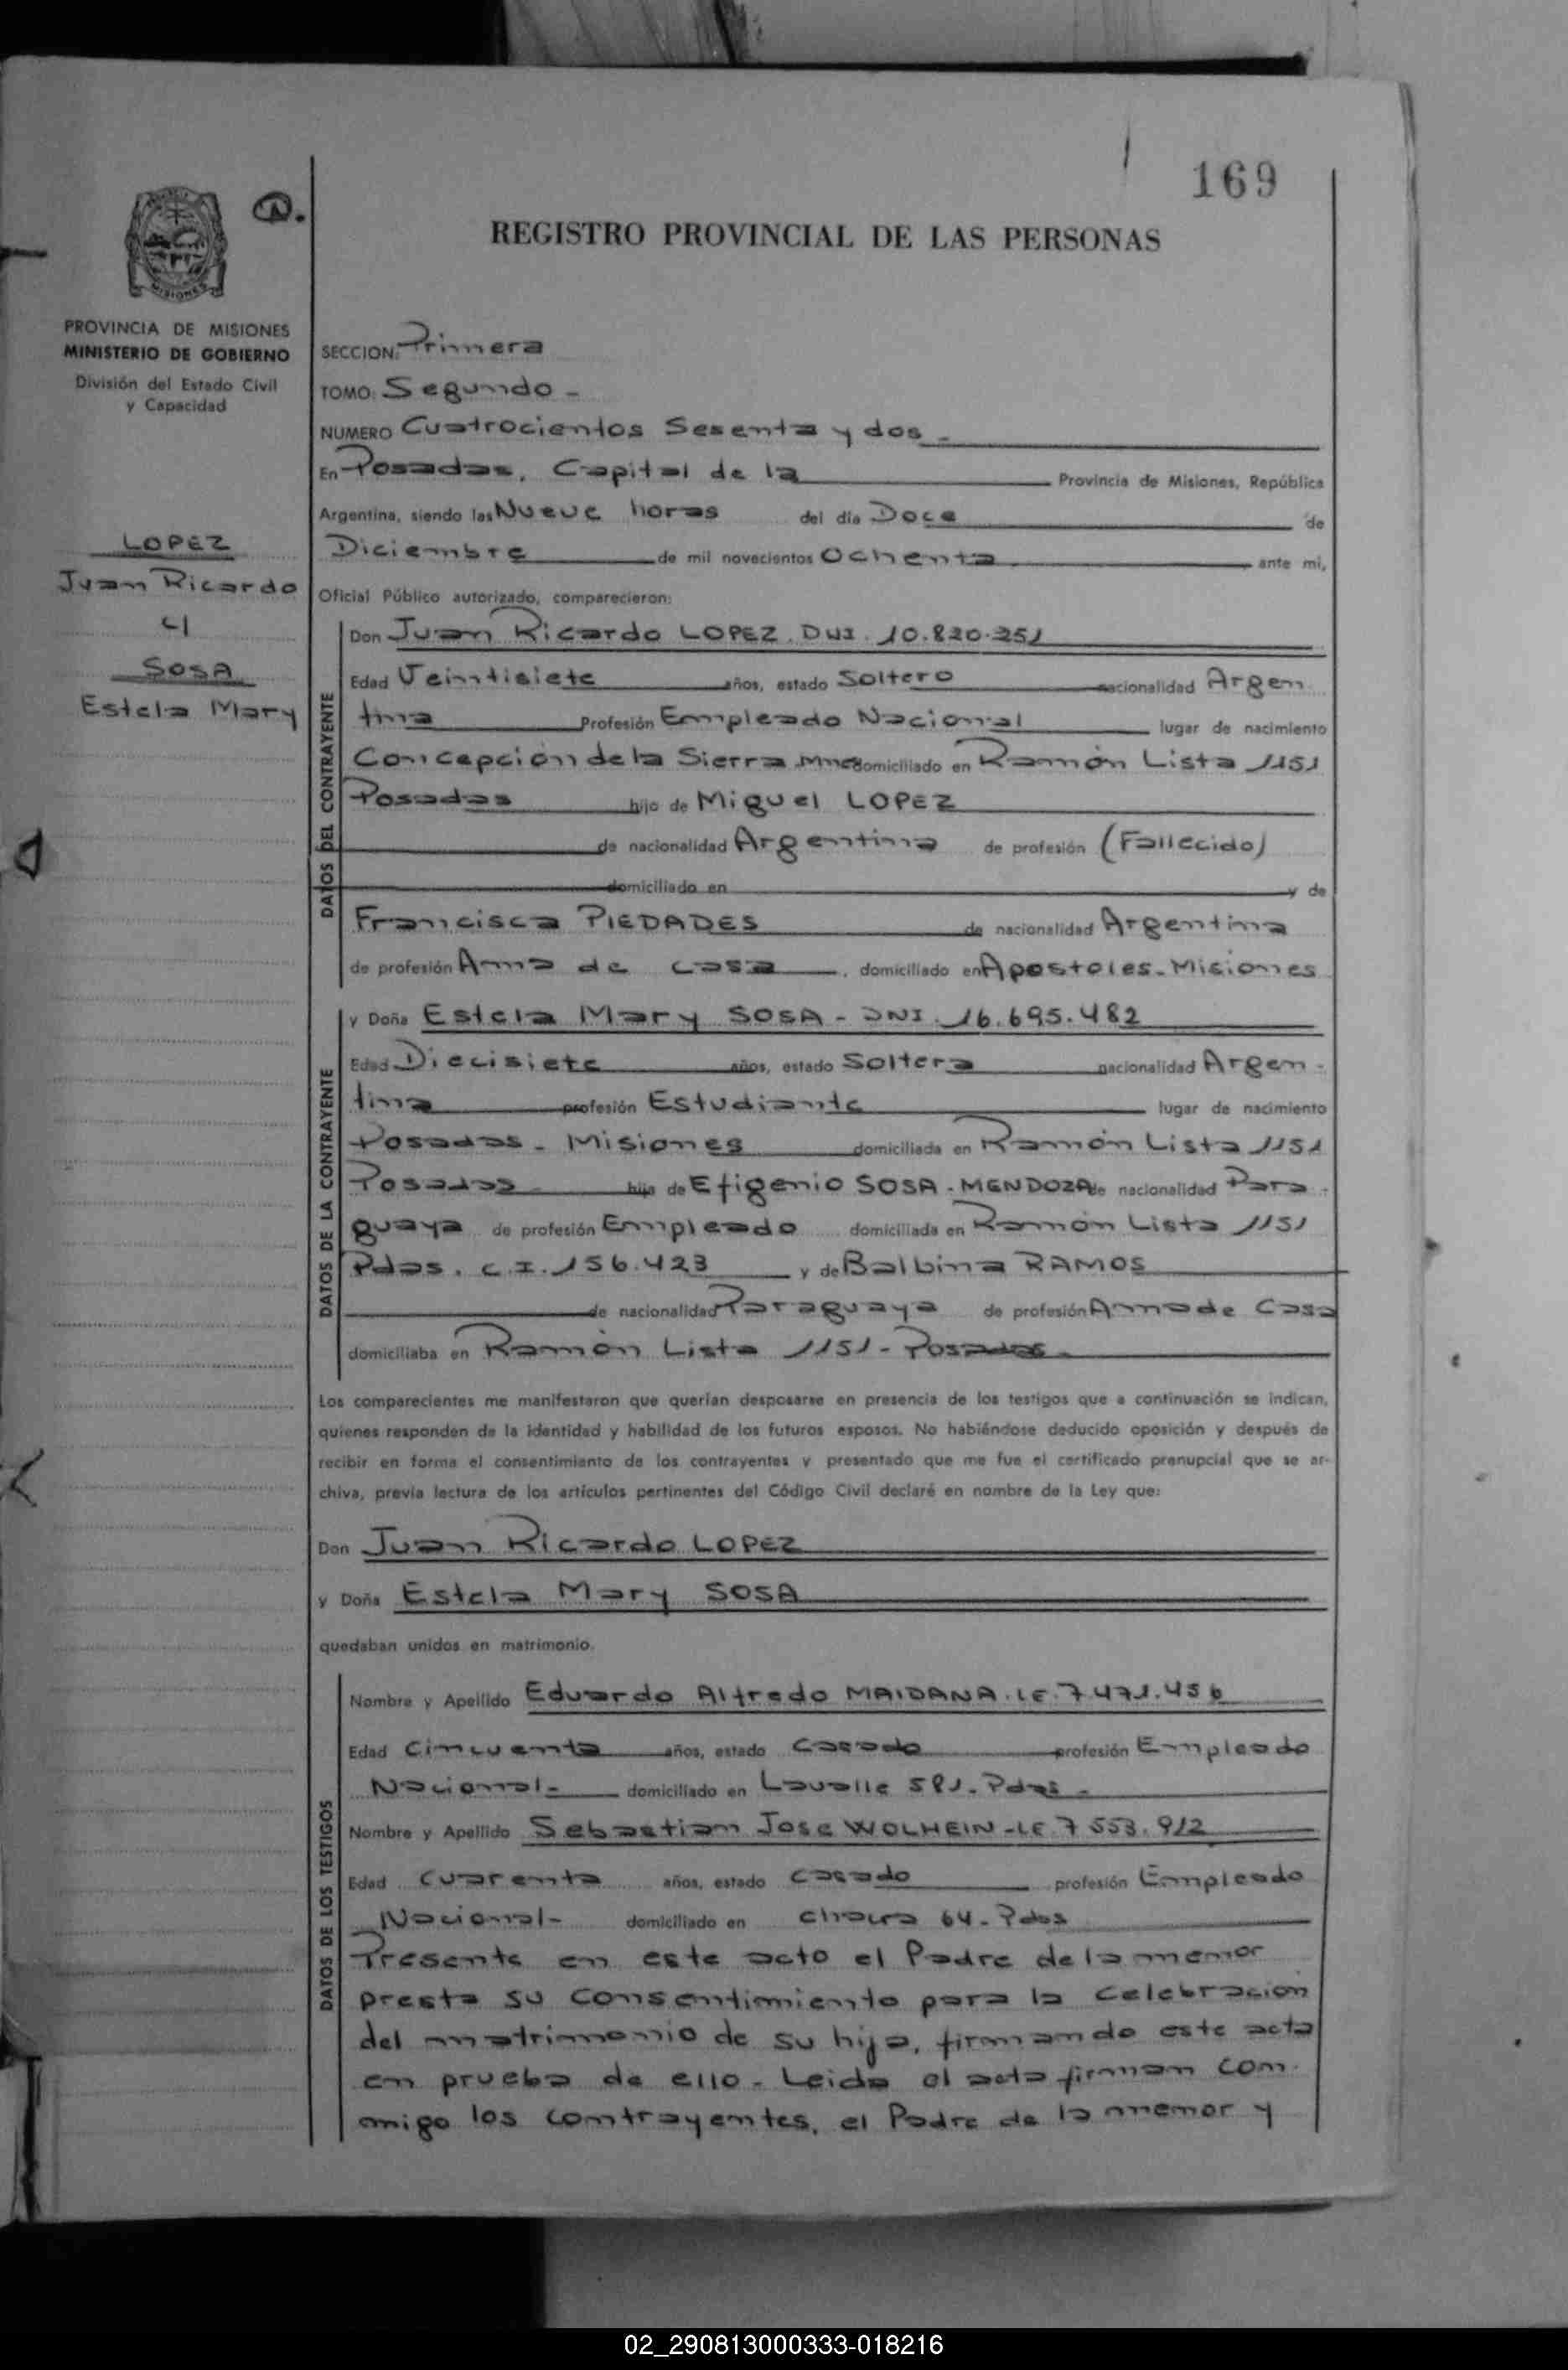 169
REGISTRO PROVINCIAL DE LAS PERSONAS
MISIONES
PROVINCIA DE MISIONES
MINISTERIO DE GOBIERNO
División del Estado Civil
y Capacidad
LOPEZ
Juan Ricardo
c/
SOSA
Estela Mary
SECCION: Primera
TOMO: Segundo -
NUMERO Cuatrocientos Sesenta y dos -
En Posadas, Capital de la Provincia de Misiones, República
Argentina, siendo las Nueve horas del día Doce de
Diciembre de mil novecientos Ochenta ante mi,
Oficial Público autorizado, comparecieron:
DATOS DEL CONTRAYENTE
Don Juan Ricardo LOPEZ. DNI. 10.820.251
Edad Veintisiete años, estado Soltero nacionalidad Argen
tina Profesión Empleado Nacional lugar de nacimiento
Concepción de la Sierra Mnes domiciliado en Ramón Lista 1151
Posadas hijo de Miguel LOPEZ
de nacionalidad Argentina de profesión (Fallecido)
domiciliado en y de
Francisca PIEDADES de nacionalidad Argentina
de profesión Ama de casa, domiciliado en Apostoles - Misiones
DATOS DE LA CONTRAYENTE
y Doña Estela Mary SOSA - DNI. 16.695.482
Edad Diecisiete años, estado Soltera nacionalidad Argen -
tina profesión Estudiante lugar de nacimiento
Posadas - Misiones domiciliada en Ramón Lista 1151
Posadas hija de Efigenio SOSA - MENDOZA de nacionalidad Para -
guaya de profesión Empleado domiciliada en Ramón Lista 1151
Pdas. C.I. 156.423 y de Balbina RAMOS
de nacionalidad Paraguaya de profesión Ama de Casa
domiciliaba en Ramón Lista 1151 - Posadas -
Los comparecientes me manifestaron que querían desposarse en presencia de los testigos que a continuación se indican,
quienes responden de la identidad y habilidad de los futuros esposos. No habiéndose deducido oposición y después de
recibir en forma el consentimiento de los contrayentes y presentado que me fue el certificado prenupcial que se ar-
chiva, previa lectura de los artículos pertinentes del Código Civil declaré en nombre de la Ley que:
Don Juan Ricardo LOPEZ
y Doña Estela Mary SOSA
quedaban unidos en matrimonio.
DATOS DE LOS TESTIGOS
Nombre y Apellido Eduardo Alfredo MAIDANA. LE. 7.471.456
Edad Cincuenta años, estado Casado profesión Empleado
Nacional - domiciliado en Lavalle 581 - Pdas -
Nombre y Apellido Sebastian Jose WOLHEIN - LE. 7 553.912
Edad Cuarenta años, estado Casado profesión Empleado
Nacional - domiciliado en chacra 64 - Pdas
Presente en este acto el Padre de la menor
presta su consentimiento para la celebracion
del matrimonio de su hija, firmando este acta
en prueba de ello - Leida el acta firman con -
migo los contrayentes, el Padre de la menor y
02_290813000333-018216